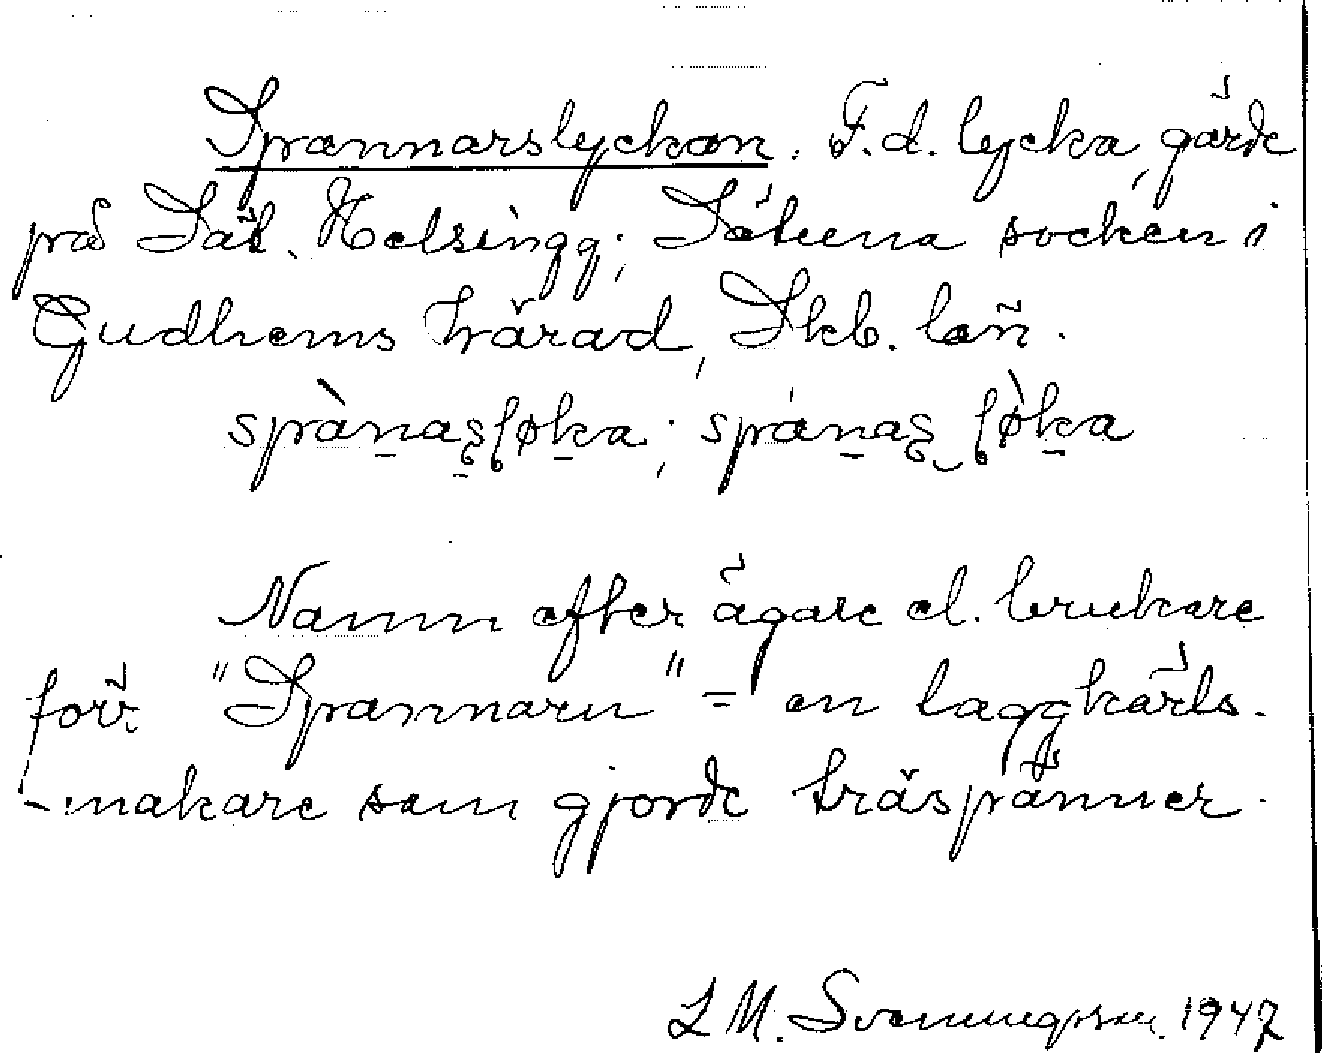 Spannarslyckan. F.d. lycka, gärde
på Sät. Helsingg; Sätuna socken i
Gudhems härad, Skb. län.
Namn efter ägare el. brukare
förr "Spannarn" = en laggkärls-
-makare som gjorde träspänner.
L M. Svenungsson. 1947